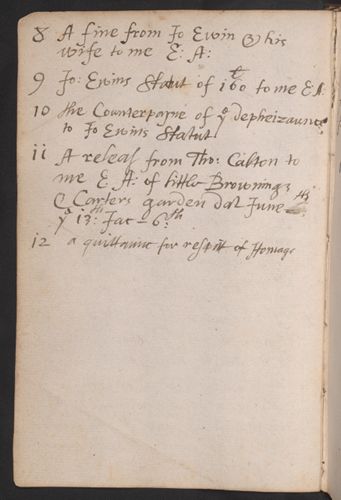 8 A fine from Jo Ewin & his
wife to me E: A:
9 Jo: Ewins Statut of 160li to me E A:
10 the Counterpayne of ye depheizaunce
to Jo Ewins Statut
11 A releas from Tho: Calton to
me E: A: of little Brownings
& Carters garden dat June
ye 13th: Jac – 6th
12 a quittaunc for respitt of Homage